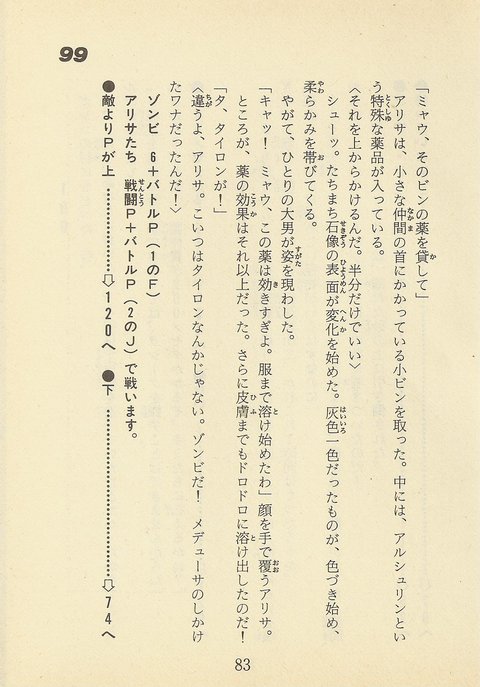 99
「ミャウ、そのビンの薬を貸して」
アリサは、小さな仲間の首にかかっている小ビンを取った。中には、アルシュリンとい
う特殊な薬品が入っている。
〈それを上からかけるんだ。半分だけでいい〉
シューッ。たちまち石像の表面が変化を始めた。灰色一色だったものが、色づき始め、
柔らかみを帯びてくる。
やがて、ひとりの大男が姿を現わした。
「キャッ！　ミャウ、この薬は効きすぎよ。服まで溶け始めたわ」顔を手で覆うアリサ。
ところが、薬の効果はそれ以上だった。さらに皮膚までもドロドロに溶け出したのだ！
「タ、タイロンが！」
〈違うよ、アリサ。こいつはタイロンなんかじゃない。ゾンビだ！　メデューサのしかけ
たワナだったんだ！〉
ゾンビ　6＋バトルP（1のF）
アリサたち　戦闘P＋バトルP（2のJ）で戦います。
●敵よりPが上 ……………⇨120へ　●下 ……………⇨74へ
83